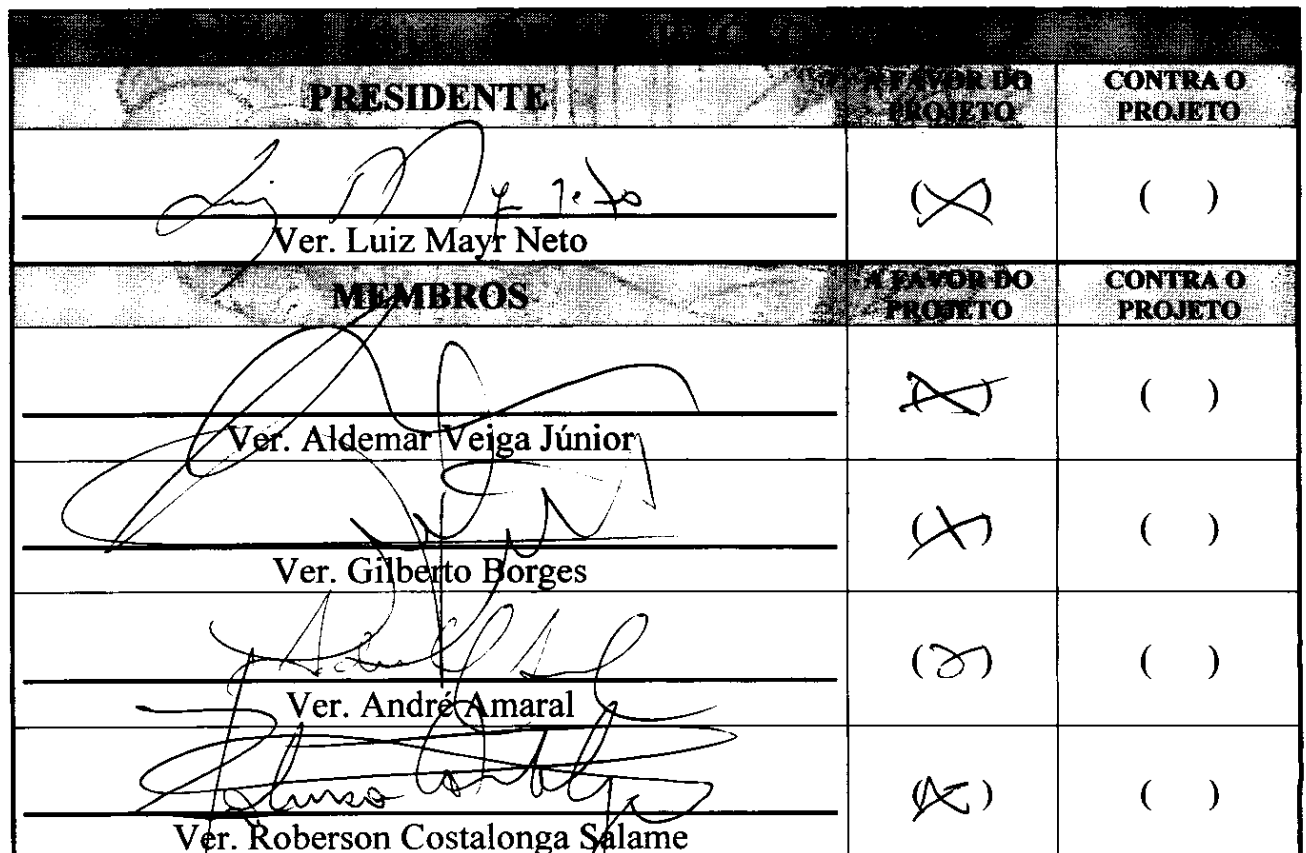 PRESIDENTE
A FAVOR DO
PROJETO
CONTRA O
PROJETO
(X)
( )
Ver. Luiz Mayr Neto
MEMBROS
A FAVOR DO
PROJETO
CONTRA O
PROJETO
(X)
( )
Ver. Aldemar Veiga Júnior
(X)
( )
Ver. Gilberto Borges
( )
Ver. André Amaral
(X)
( )
Ver. Roberson Costalonga Salame